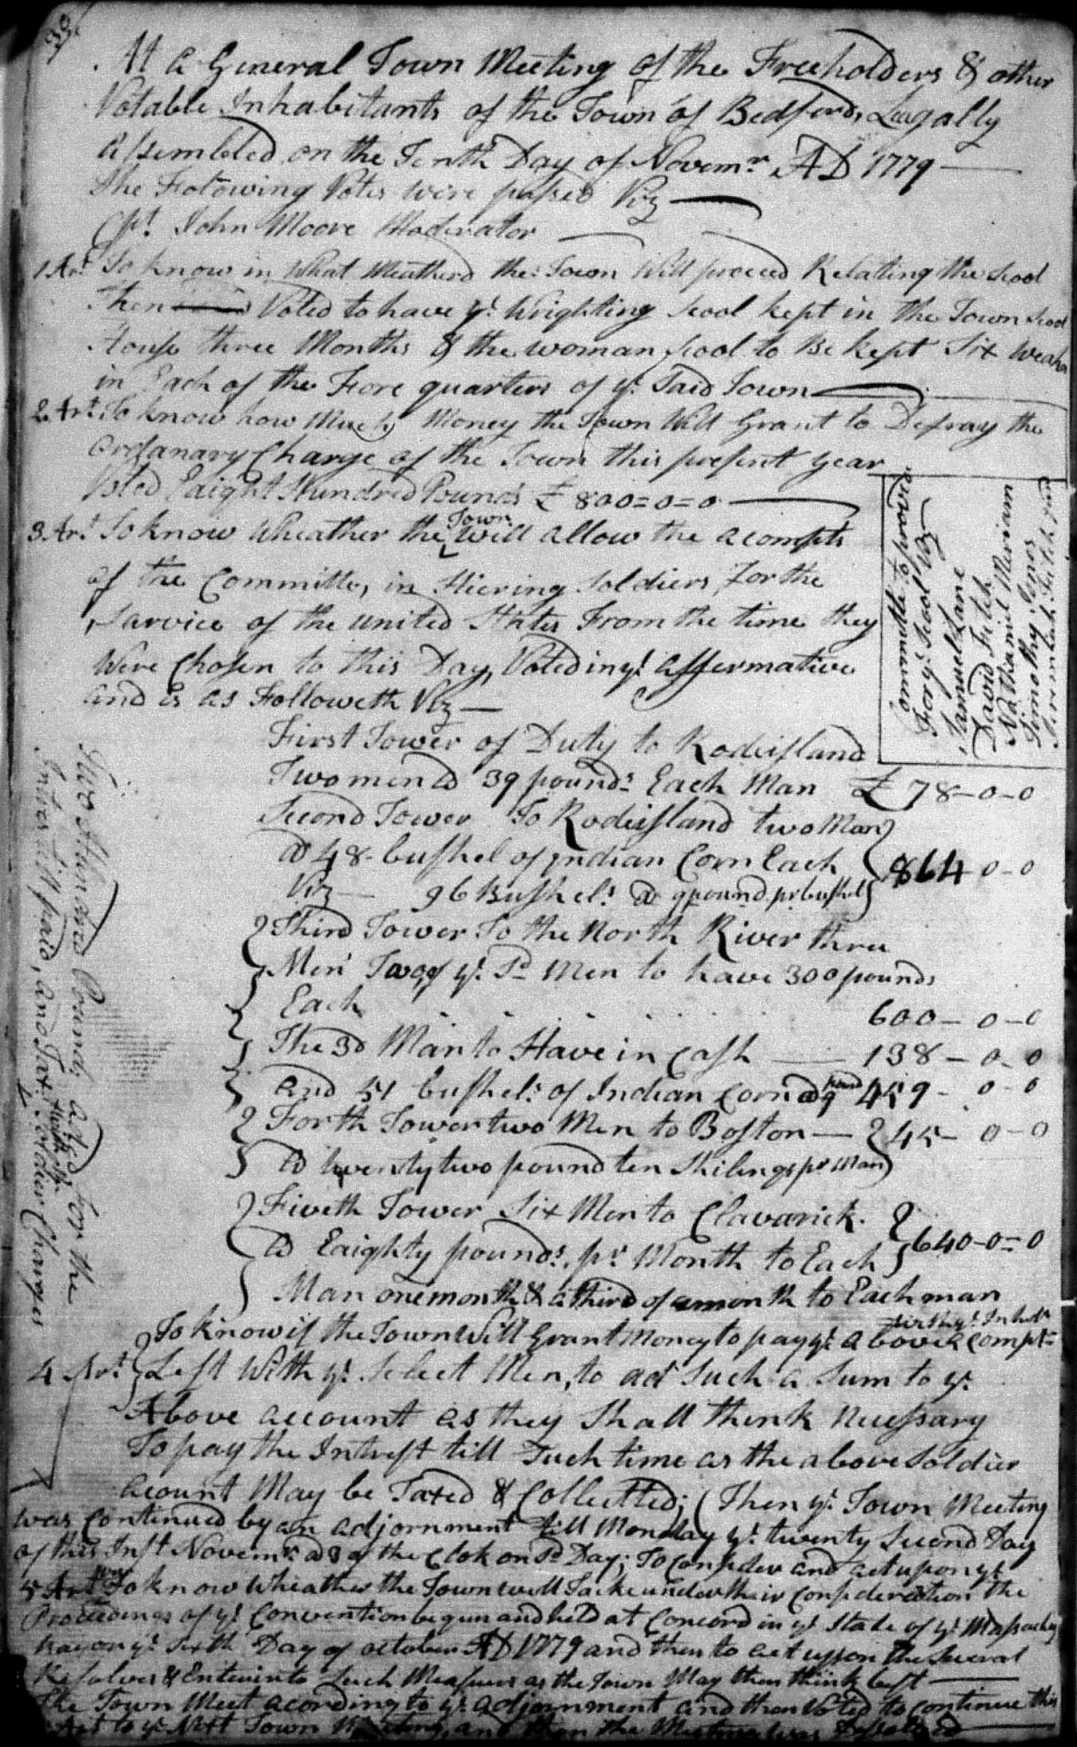 39
At a General Town Meeting of the Freeholders & other
Votable Inhabitants of the Town of Bedford, Leegally
Assembled on the Tenth Day of Novemr. AD 1779
the Folowing Votes were passed Viz
Cpt. John Moore Moderator
1 Art. To know in What Meatherd the Town Will proceed Relating the scool
Then Voted to have ye. Wrighting scool kept in the Town scool
House three Months & the woman scool to Be kept Six weaks
in Each of the Fore quarters of ye. Said Town
2 Art. To know how Much Money the Town Will Grant to Defray the
Ordanary Charge of the Town this present year
Voted Eaight Hundred Pounds £ 800=0=0
3 Art. To know Wheather the Town Will allow the acompts
of the Committe, in Hiering Soldiers For the
Sarvice of the united States From the time they
Were Chosen to this Day, Voted in ye. affermative
and is as Followeth Viz
Committe to provide
For ye. scool Viz
Samuel Lane
David Fitch
Nathaniel Meriam
Timothy Jones
Jeremiah Fitch Jun
First Tower of Duty to Rodeisland
Two men @ 39 pounds. Each Man £ 78-0-0
Second Tower To Rodeisland two Man
@ 48 bushel of Indian Corn Each
Viz 96 Bushels. @ 9 pound pr bushel 864-0-0
Third Tower To the North River three
Men Two of ye. Sd Men to have 300 pounds
Each 600-0-0
The 3d Man to Have in Cash 138-0-0
and 51 bushels. of Indian Corn @ 9 pound 459-0-0
Forth Tower two Men to Boston 45-0-0
@ twenty two pound ten Shilings pr Man
Fiveth Tower Six Men to Clavarick
@ Eaighty pounds. pr Month to Each 640-0=0
Man one month & a third of a month to Each man
To know if the Town Will Grant Money to pay ye. above acompts
4 Art. Left With ye. Select Men, to ad Such a Sum to ye.
Above account as they Shall think necessary
To pay the Intrest till Such time as the above soldier
acount May be Taxed & Collected; (Then ye. Town Meeting
was Continued by an adjornment till Monday ye. twenty Second Day
of this Inst Novemr. @ 3 of the Clok on Sd Day; To Consider and act upon ye.
5 Art To know Wheather the Town will Take under their Consideration the
Proceedings of ye. Convention begun and held at Concord in ye. State of ye. Massachu
on ye. Sixth Day of october AD 1779 and then to act upon the Several
Resolves & Enter into Such Measures as the Town May then think best
The Town Meet acording to ye. adjornment and then Voted to continue this
Art to ye. Next Town Meeting, and then the Meeting was Dissolved
Two Hundred Pounds aded for the
Intrest till paid, and Tax Soldier Charges